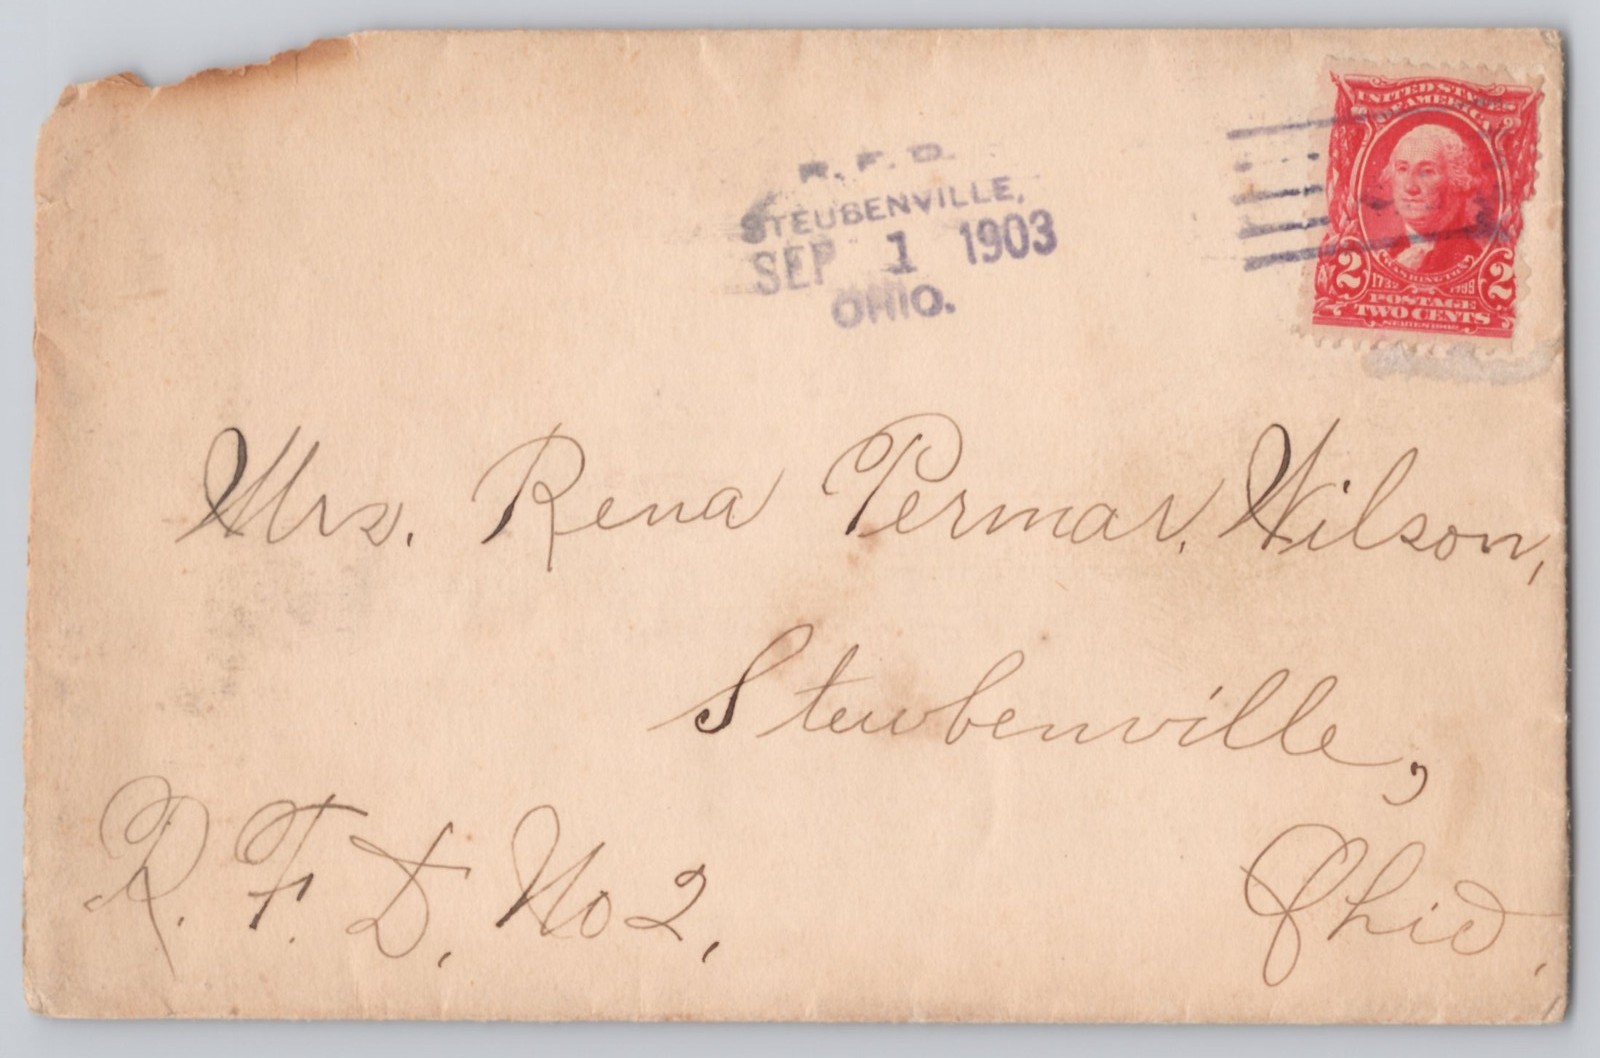 R. F. D.
STEUBENVILLE,
SEP 1 1903
OHIO.
UNITED STATES
OF AMERICA
2 2
WASHINGTON
1732 1799
POSTAGE
TWO CENTS
SERIES 1902
Mrs. Rena Permar Wilson,
Steubenville,
R. F. D. No 2,
Ohio,